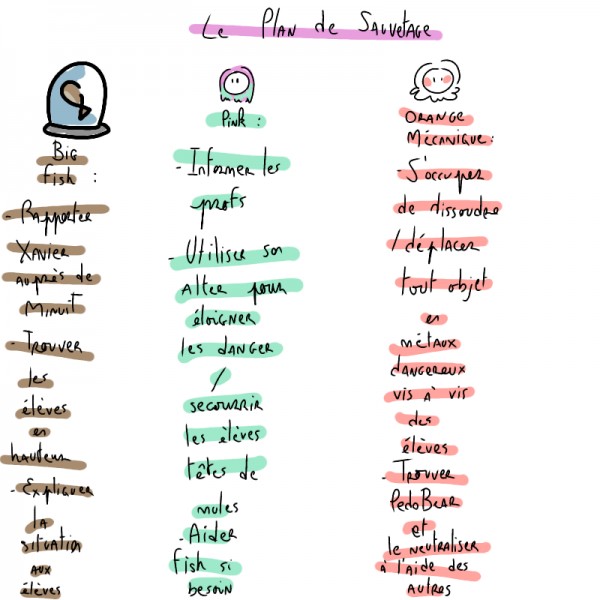 Le Plan de Sauvetage
Big
Fish :
- Rapporter
Xavier
auprès de
Minuit
- Trouver
les
élèves
en
hauteur
- Expliquer
la
situation
aux
élèves
Pink :
- Informer les
profs
- Utiliser son
alter pour
éloigner
les danger
/
secourrir
les élèves
têtes de
mules
- Aider
Fish si
besoin
Orange
Mécanique :
- S'occuper
de dissoudre
/ déplacer
tout objet
en
métaux
dangereux
vis à vis
des
élèves
- Trouver
PedoBear
et
le neutraliser
à l'aide des
autres